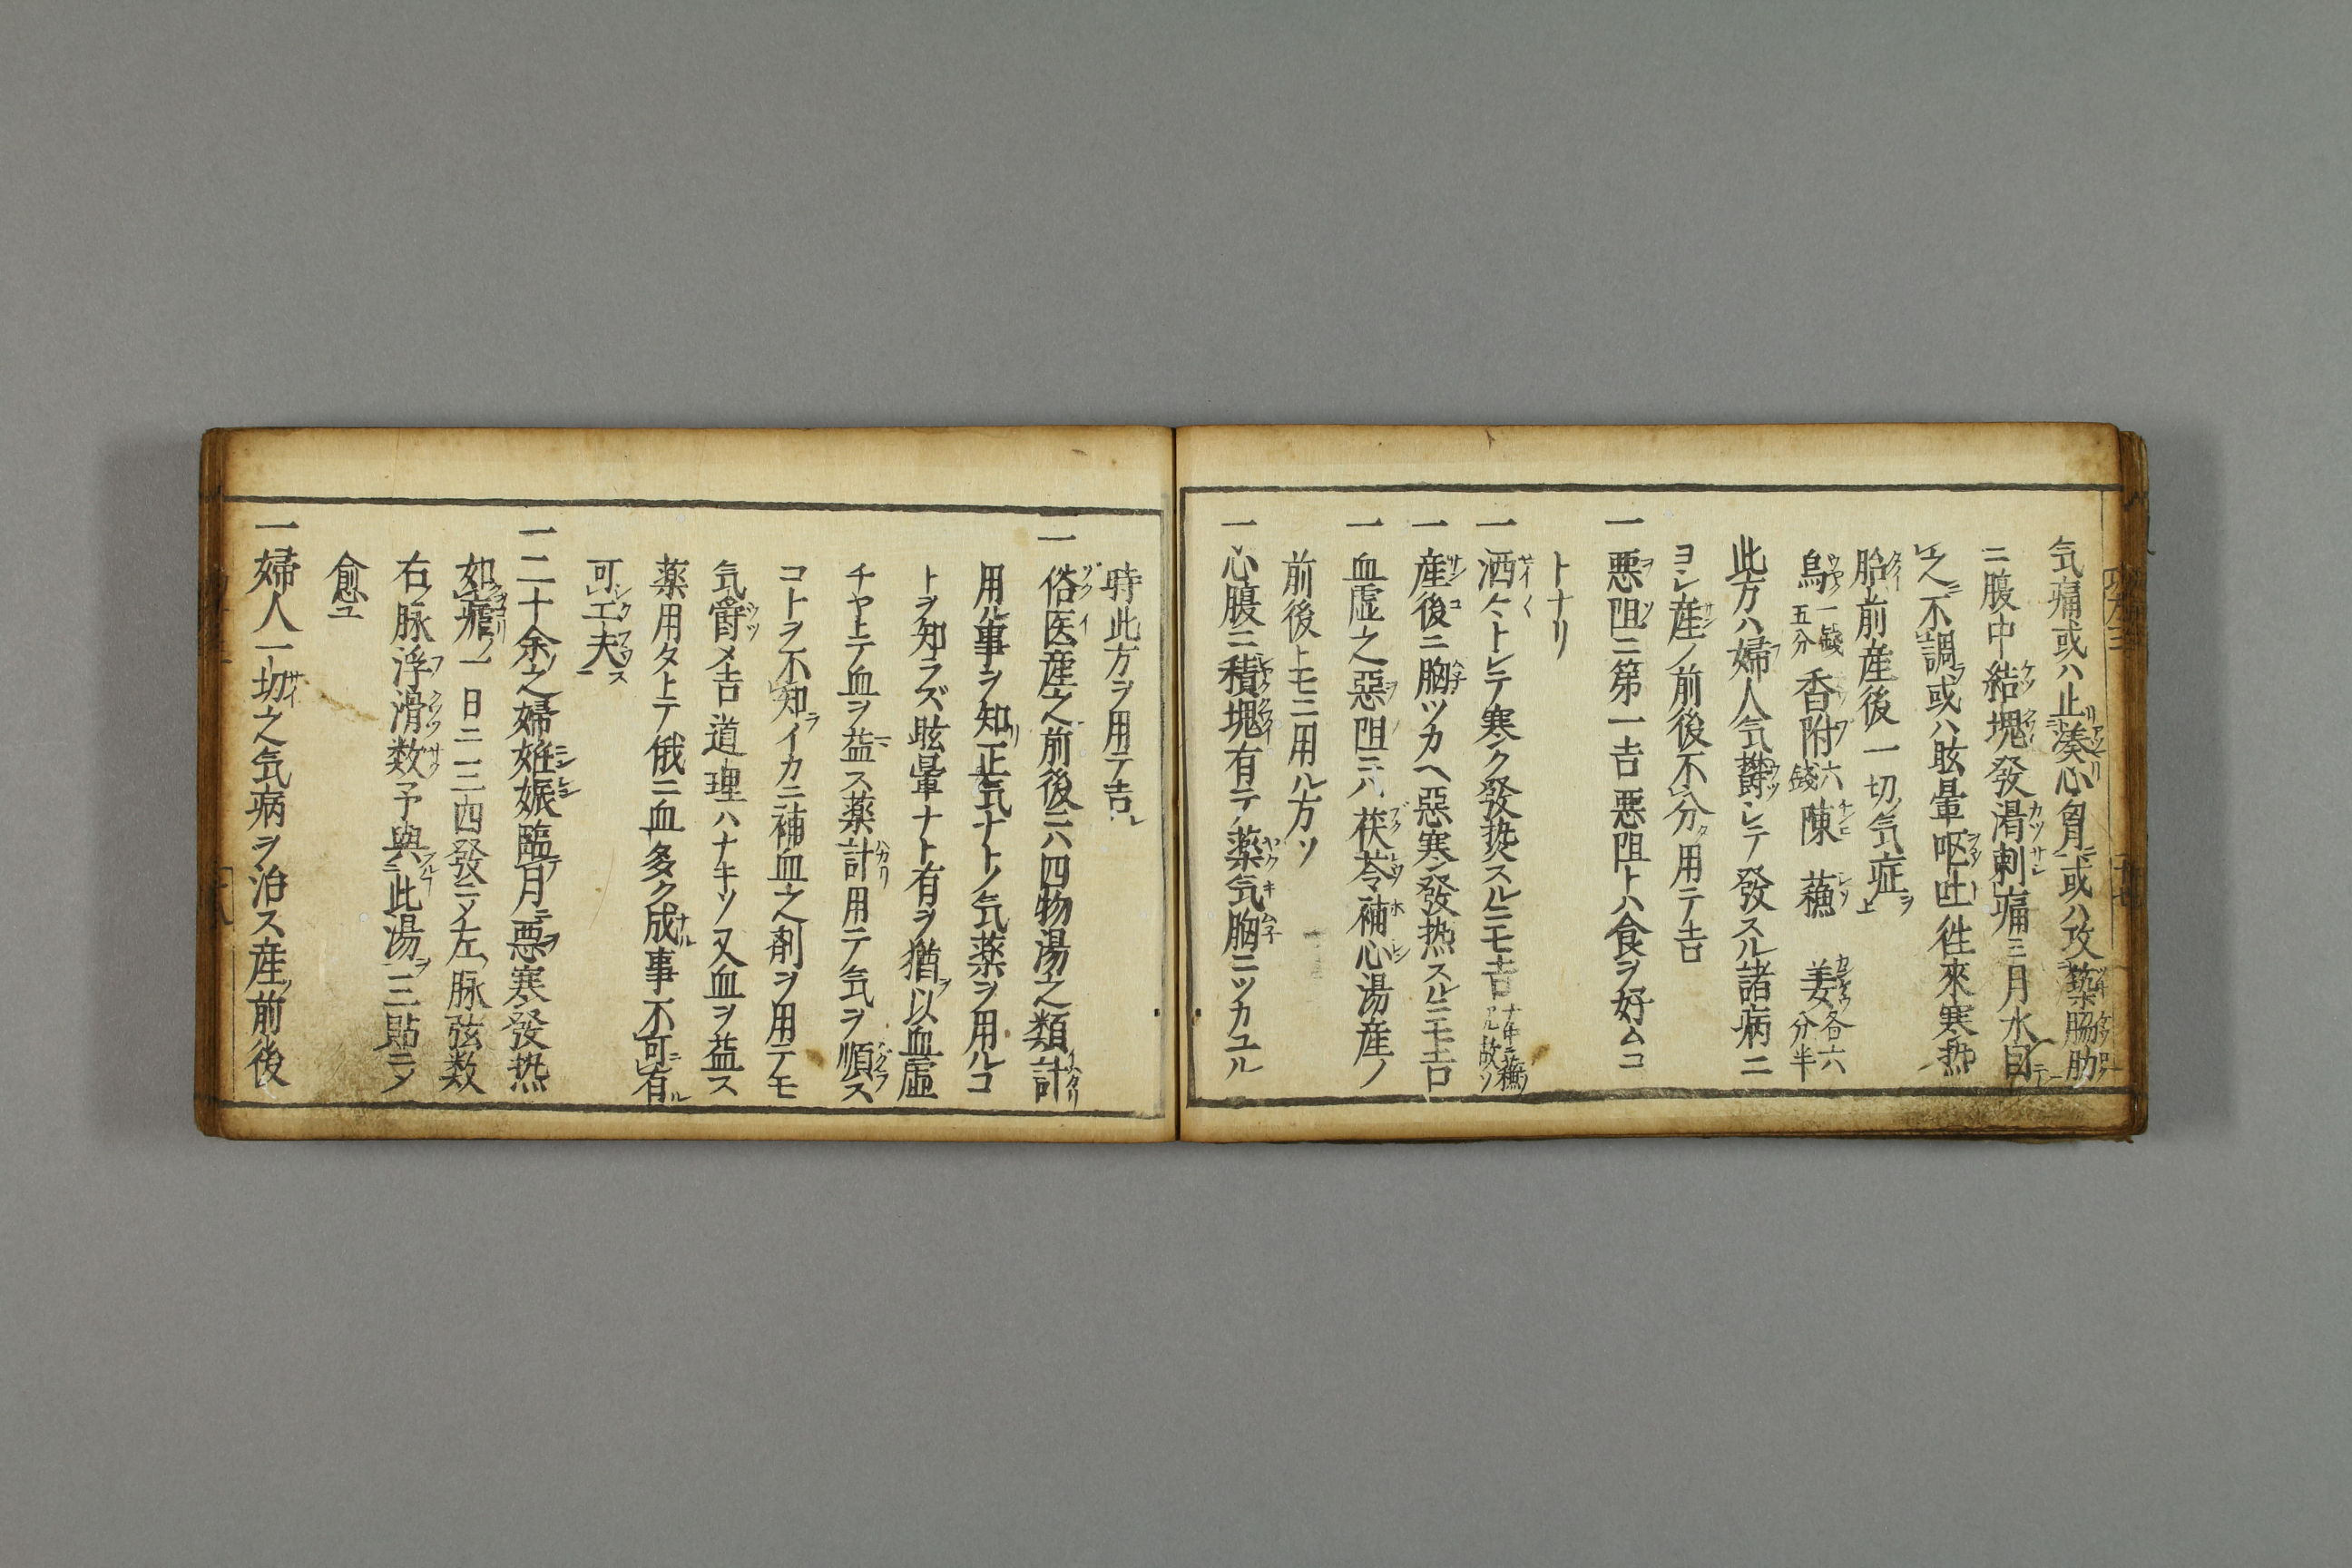 気痛或ハ止湊心胷或ハ攻築脇肋
ニ腹中結塊發渇刺痛ニ月水因テ
之不調或ハ眩暈呕吐徃來寒热
胎前産後一切ノ気症ヲ
烏一錢五分 香附六錢 陳 蘓 姜各六分半
此方ハ婦人気欝シテ發スル諸病ニ
ヨシ産ノ前後不分用テ吉
一悪阻ニ第一吉悪阻トハ食ヲ好ムコ
トナリ
一洒々トシテ寒ク發热スルニモ吉
一産後ニ胸ツカヘ惡寒發热スルニモ吉
一血虚之惡阻ニハ茯苓補心湯産ノ
前後トモニ用ル方ソ
一心腹ニ積塊有テ薬気胸ニツカユル
時此方ヲ用テ吉
一俗医産之前後ニハ四物湯之類計
用ル事ヲ知正気ナトノ気薬ヲ用ルコ
トヲ知ラズ眩暈ナト有ヲ猶以血虚
チヤトテ血ヲ益ス薬計用テ気ヲ順ス
コトヲ不知イカニ補血之剤ヲ用テモ
気爵メ吉道理ハナキソ又血ヲ益ス
薬用タトテ俄ニ血多ク成事不可有
可工夫
一二十余之婦姙娠臨月悪寒發热
如瘧一日ニ三四發ニメ左ノ脉弦数
右ノ脉浮滑数予與此湯ヲ三貼ニメ
愈ユ
一婦人一切之気病ヲ治ス産前後